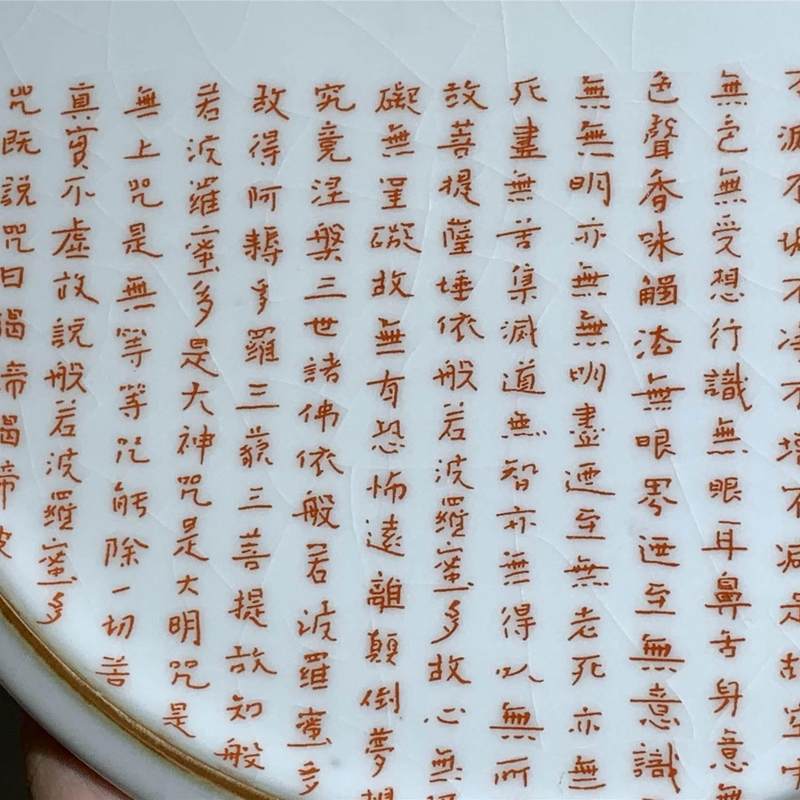 不滅不垢不淨不增不減是故空中
無色無受想行識無眼耳鼻舌身意無
色聲香味觸法無眼界迺至無意識
無無明亦無無明盡迺至無老死亦無
死盡無苦集滅道無智亦無得以無所
故菩提薩埵依般若波羅蜜多故心無
礙無罣礙故無有恐怖遠離顛倒夢想
究竟涅槃三世諸佛依般若波羅蜜多
故得阿耨多羅三藐三菩提故知般
若波羅蜜多是大神咒是大明咒是
無上咒是無等等咒能除一切苦
真實不虛故說般若波羅蜜多
咒既說咒曰揭帝揭帝波